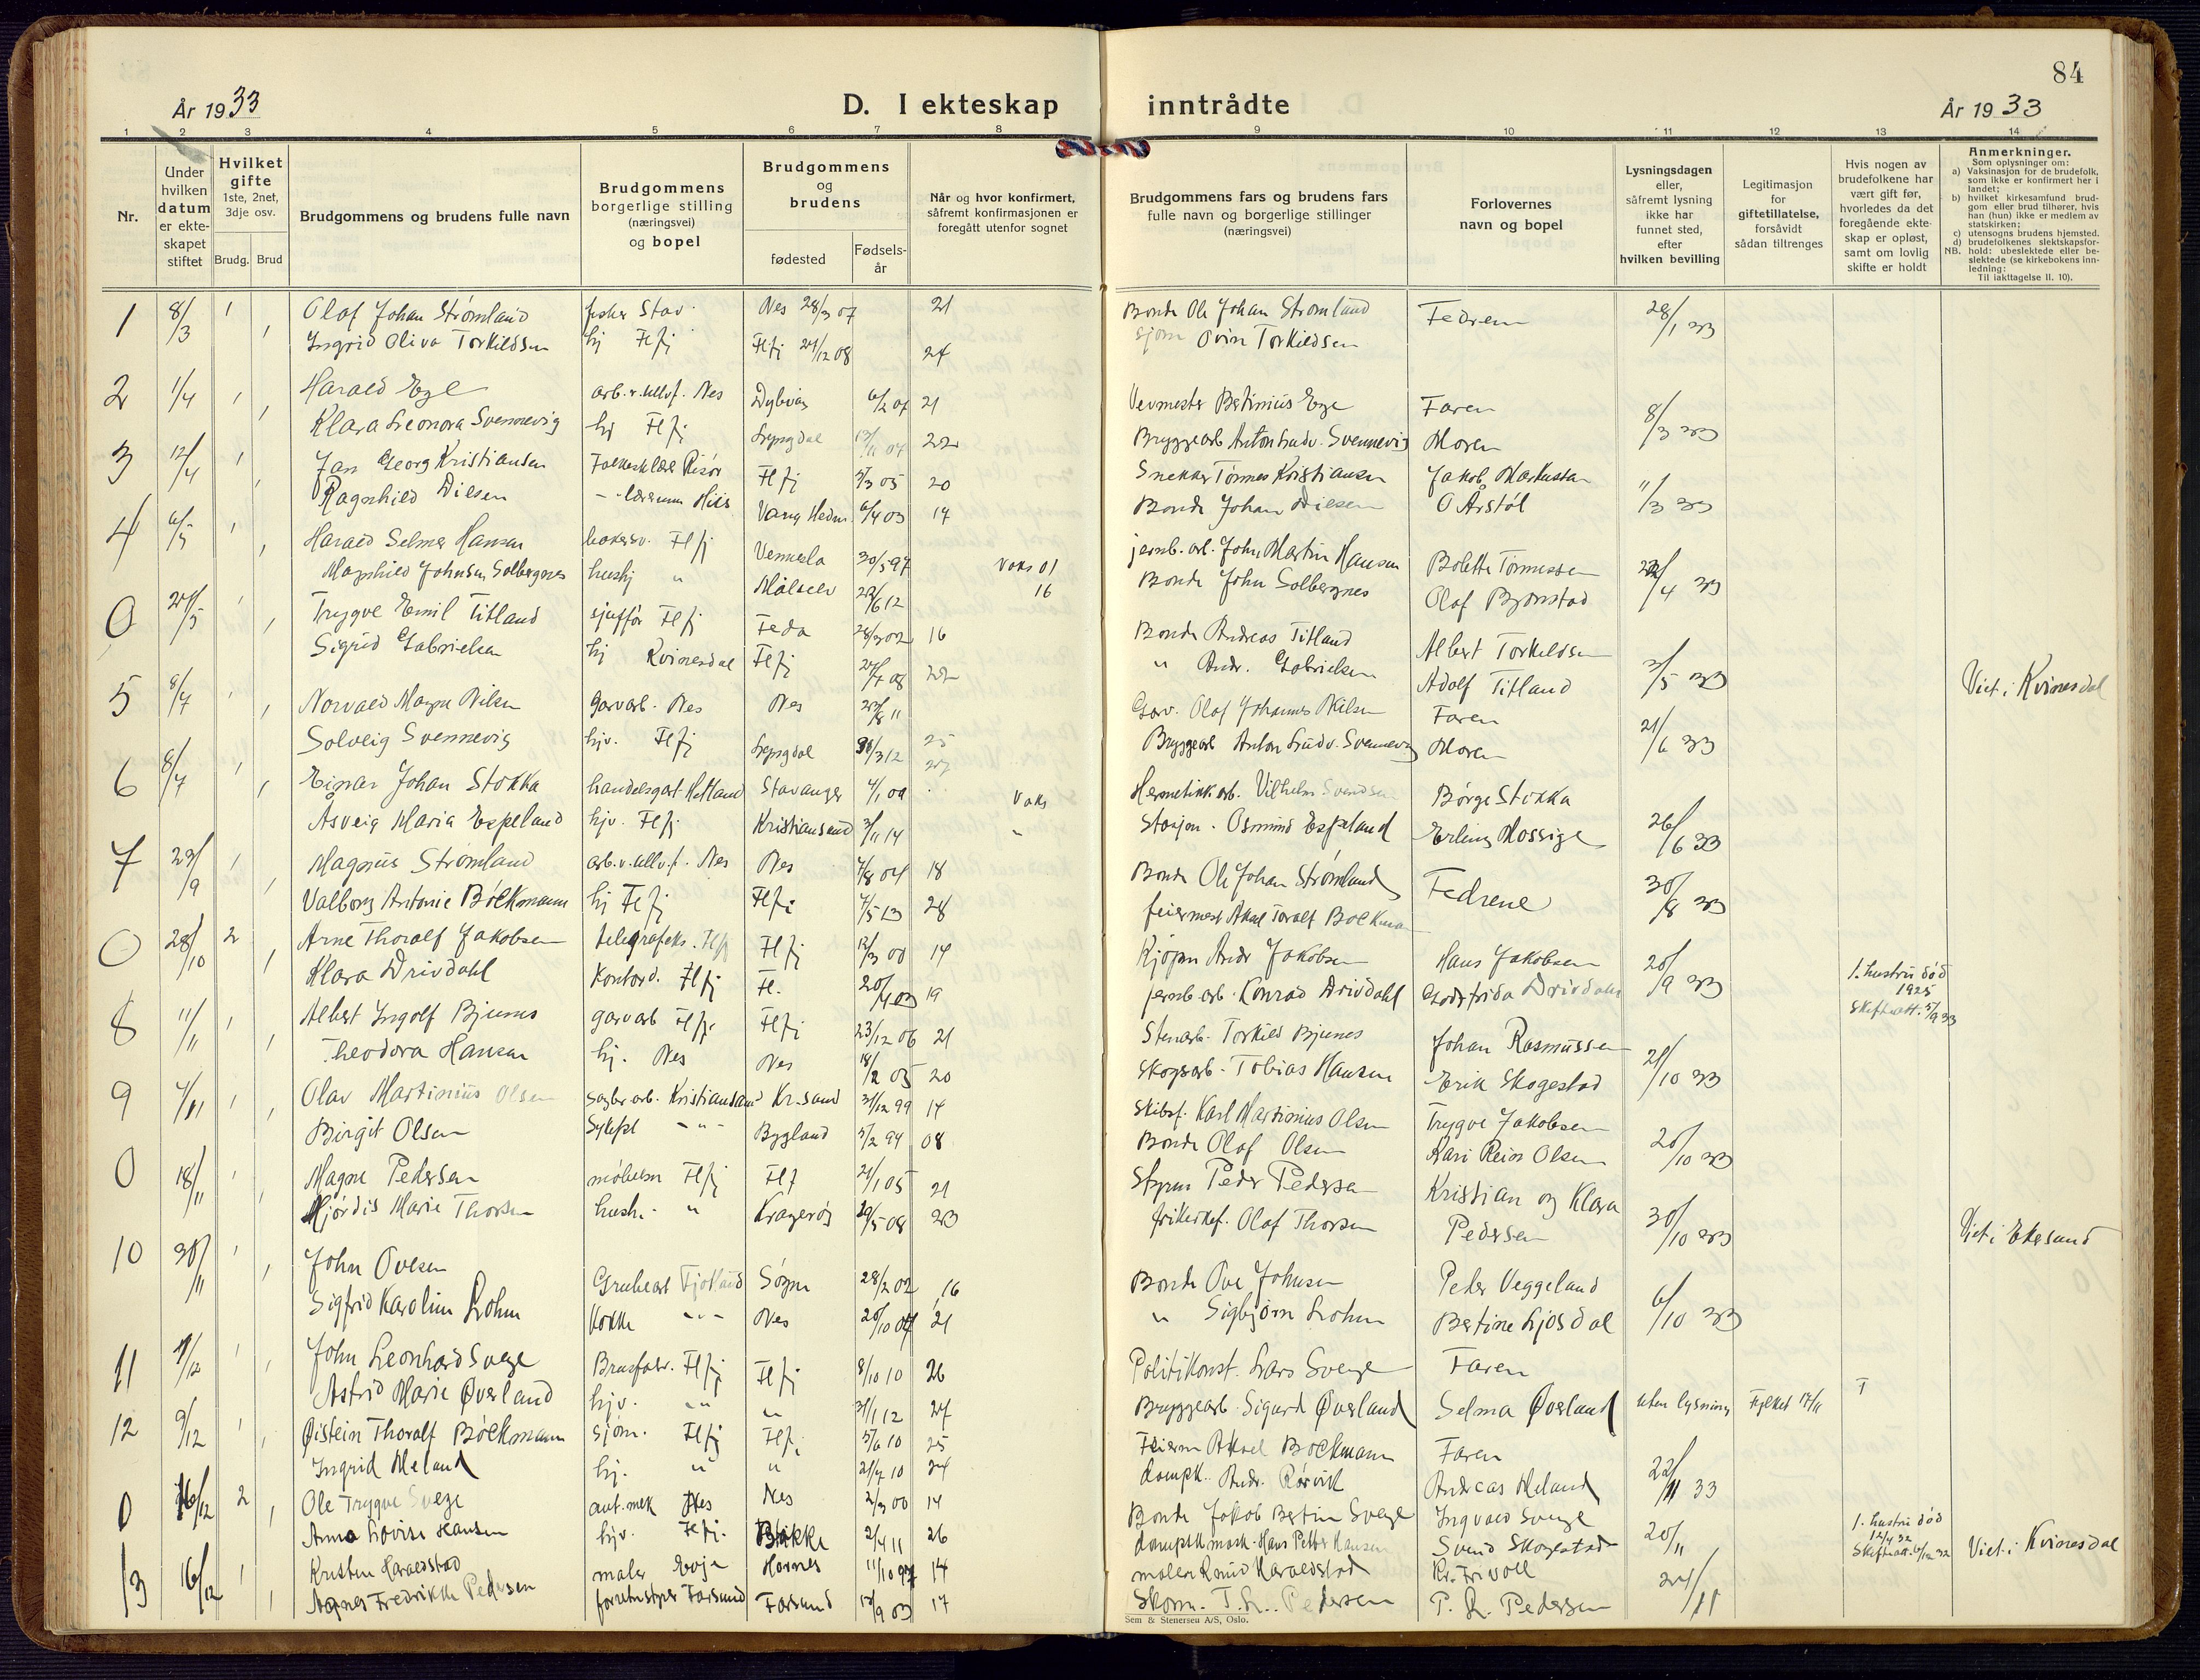 84
År 1933
D. I ekteskap
inntrådte
År 1933
1 2 3 4 5 6 7 8 9 10 11 12 13 14
Nr.
Under hvilken datum er ekteskapet stiftet
Hvilket gifte
1ste, 2net, 3dje osv.
Brudg. Brud
Brudgommens og brudens fulle navn
Brudgommens borgerlige stilling (næringsvei) og bopel
Brudgommens og brudens
fødested
Fødselsår
Når og hvor konfirmert, såfremt konfirmasjonen er foregått utenfor sognet
Brudgommens fars og brudens fars fulle navn og borgerlige stillinger (næringsvei)
Forlovernes navn og bopel
Lysningsdagen eller, såfremt lysning ikke har funnet sted, efter hvilken bevilling
Legitimasjon for giftetillatelse, forsåvidt sådan tiltrenges
Hvis nogen av brudefolkene har vært gift før, hvorledes da det foregående ekteskap er opløst, samt om lovlig skifte er holdt
Anmerkninger.
Som oplysninger om:
a) Vaksinasjon for de brudefolk, som ikke er konfirmert her i landet;
b) hvilket kirkesamfund brudgom eller brud tilhører, hvis han (hun) ikke er medlem av statskirken;
c) utensogns brudens hjemsted.
d) brudefolkenes slektskapsforhold: ubeslektede eller beslektede (se kirkebokens innledning:
NB. Til iakttagelse II. 10).
1 8/3 1 Olaf Johan Strømland fisker Stav. Nes 28/3 07 21 Bonde Ole Johan Strømland Fedrene 28/1 33
1 Ingrid Oliva Torkildsen hj Flfj Flfj 24/12 08 24 sjøm Ovin Torkildsen
2 1/4 1 Harald Ege arb. v. ullvf. Nes Dybvåg 6/2 07 21 Vevmester Bertinius Ege Faren 8/3 33
1 Klara Leonora Svennevig hj Flfj Lyngdal 22 Bryggearb Anton Ludv. Svennevig Moren
3 12/4 1 Jan Georg Kristiansen Risør Flfj 5/3 05 20 Snekker Tønnes Kristiansen Jakob Markussen 11/3 33
1 Ragnhild Nilsen Vang Hedm. 6/4 03 17 Bonde Johan Nilsen O Årstøl
4 6/5 1 Harald Selmer Hansen bokersv. Flfj Vennesla 30/5 97 Vaks 01 jernb. arb. John Martin Hansen Bolette Tønnessen 22/4 33
1 Magnhild Johnsen Solbergnes hushj " Målselv 29/6 12 16 Bonde John Solbergnes Olaf Bjørnstad
0 27/5 1 Trygve Emil Titland sjåffør Flfj Feda 28/3 02 16 Bonde Andreas Titland Albert Torkildsen 3/5 33 Viet i Kvinesdal
1 Sigrid Gabrielsen hj Kvinesdal Flfj 27/7 08 22 " Andr. Gabrielsen Adolf Titland
5 8/7 1 Norvald Magn Nilsen garvarb. Nes Nes 22/8 11 25 Garv. Olaf Johannes Nilsen Faren 21/6 33
1 Solveig Svennevig hjv. Flfj Lyngdal 31/3 12 27 Bryggearb Anton Ludv. Svennevig Moren
6 8/7 1 Einar Johan Stokka handelsgart Hetland Stavanger 4/1 09 Vaks Hermetikkarb. Vilhelm Svendsen Børge Stokka 26/6 33
1 Åsveig Maria Espeland hjv. Flfj Kristiansand 3/11 14 " Stasjon. Osmund Espeland Erling Mossige
7 23/9 1 Magnus Strømland arb. v. ullv. f. Nes Nes 7/8 04 18 Bonde Ole Johan Strømland Fedrene 30/8 33
1 Valborg Antonie Bøckmann hj Flfj Flfj 7/5 13 28 feiermest Aksel Toralf Bøckman
0 28/10 2 Arne Thoralf Jakobsen telegrafeks. Flfj Flfj 12/3 00 14 Kjøpm Andr Jakobsen Hans Jakobsen 20/9 33 1. hustru død 1925
1 Klara Drivdahl Kontord. Flfj Fl. 20/4 03 19 jernb arb. Konrad Drivdahl Godtfrida Drivdahl Skifteatt. 5/9 33
8 11/11 1 Albert Ingolf Bjunes garvarb Flfj. Flfj 23/12 06 21 Stenarb. Torkild Bjunes Johan Rasmussen 21/10 33
1 Theodora Hansen hj. Nes Nes 18/2 05 20 Skogsarb. Tobias Hansen Erik Skogestad
9 4/11 1 Olav Martinius Olsen sagbr arb. Kristiansand Kr.sand 31/12 99 14 Skibsf. Karl Martinius Olsen Trygve Jakobsen 20/10 33
1 Birgit Olsen Sykepl - " - Bygland 5/2 94 08 Bonde Olaf Olsen Kari Reier Olsen
0 18/11 1 Magne Pedersen Flfj Flf 21/1 05 21 Styrm Peder Pedersen Kristian og Klara 30/10 33
1 Hjørdis Marie Thorsen hush. " Kragerø 29/5 08 23 Olaf Thorsen Pedersen Viet i Ekersund
10 30/11 1 John Ovesen Grubearb Fjotland Søgne 28/2 02 16 Bonde Ove Johnsen Peder Veggeland 6/10 33
1 Sigfrid Karoline Lohm Kokke - " - Nes 20/10 07 21 " Sigbjørn Lohm Bertine Ljosdal
11 9/12 1 John Leonhard Svege Brusfabr. Flfj Flfj 8/10 10 26 Politikonst. Lars Svege Faren uten lysning Fylket 17/11
1 Astrid Marie Øverland hjv. " " 31/1 12 27 Bryggearb. Sigurd Øverland Selma Øverland
12 9/12 1 Øistein Thoralf Bøckmann sjøm. Flfj Flfj 5/6 10 25 Feierm Aksel Bøckmann Faren 22/11 33
1 Ingrid Meland hj. " " 21/7 10 24 dampk. Andr. Rørvik Andreas Meland
0 16/12 2 Ole Trygve Svege aut. mek Nes Nes 2/3 00 14 Bonde Jakob Bertin Svege Ingvald Svege 20/11 1. hustru død 12/4 32
1 Anna Lovise Hansen hjv. Flfj. Bakke 2/4 11 26 dampsk mask. Hans Petter Hansen Svend Skogestad Skifteatt. Viet i Kvinesdal
13 16/12 1 Kristen Haraldstad maler Evje Hornnes 11/10 97 14 maler Knud Haraldstad Kr. Frivoll 24/11
1 Agnes Fredrikke Pedersen Farsund Farsund 13/9 03 17 Skom. T. L. Pedersen P. L. Pedersen
Sem & Stenersen A/S, Oslo.